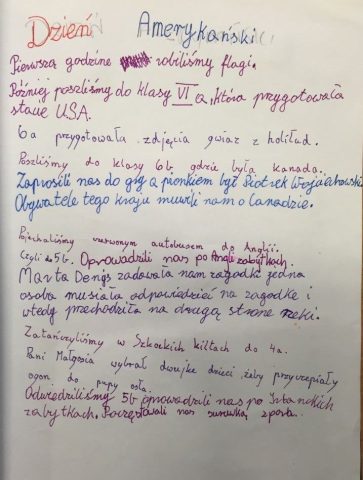 Dzień Amerykański
Pierwszą godzine robiliśmy flagi.
Później poszliśmy do klasy VI a, która przygotowała
stacje USA.
6a przygotowała zdjęcia gwiaz z holiłud.
Poszliśmy do klasy 6b gdzie była kanada.
Zaprosili nas do gry a pionkiem był Piotrek
Obywatele tego kraju muwili nam o Canadzie.
Pojechaliśmy czerwonym autobusem do Anglii.
Czyli do 5b. Oprowadzili nas po Angli zabytkach.
Marta Denys zadawała nam zagadki jedna
osoba musiała odpowiedzieć na zagodke i
wtedy przechodziła na drugą strone rzeki.
Zatańczyliśmy w Szkockich kiltach do 4a.
Pani Małgosia wybrał dwujke dzieci żeby przyczepiały
ogon do pupy osła.
Odwiedziliśmy 5b oprowadzili nas po
zabytkach. Poczęstowali nas surówką z pora.